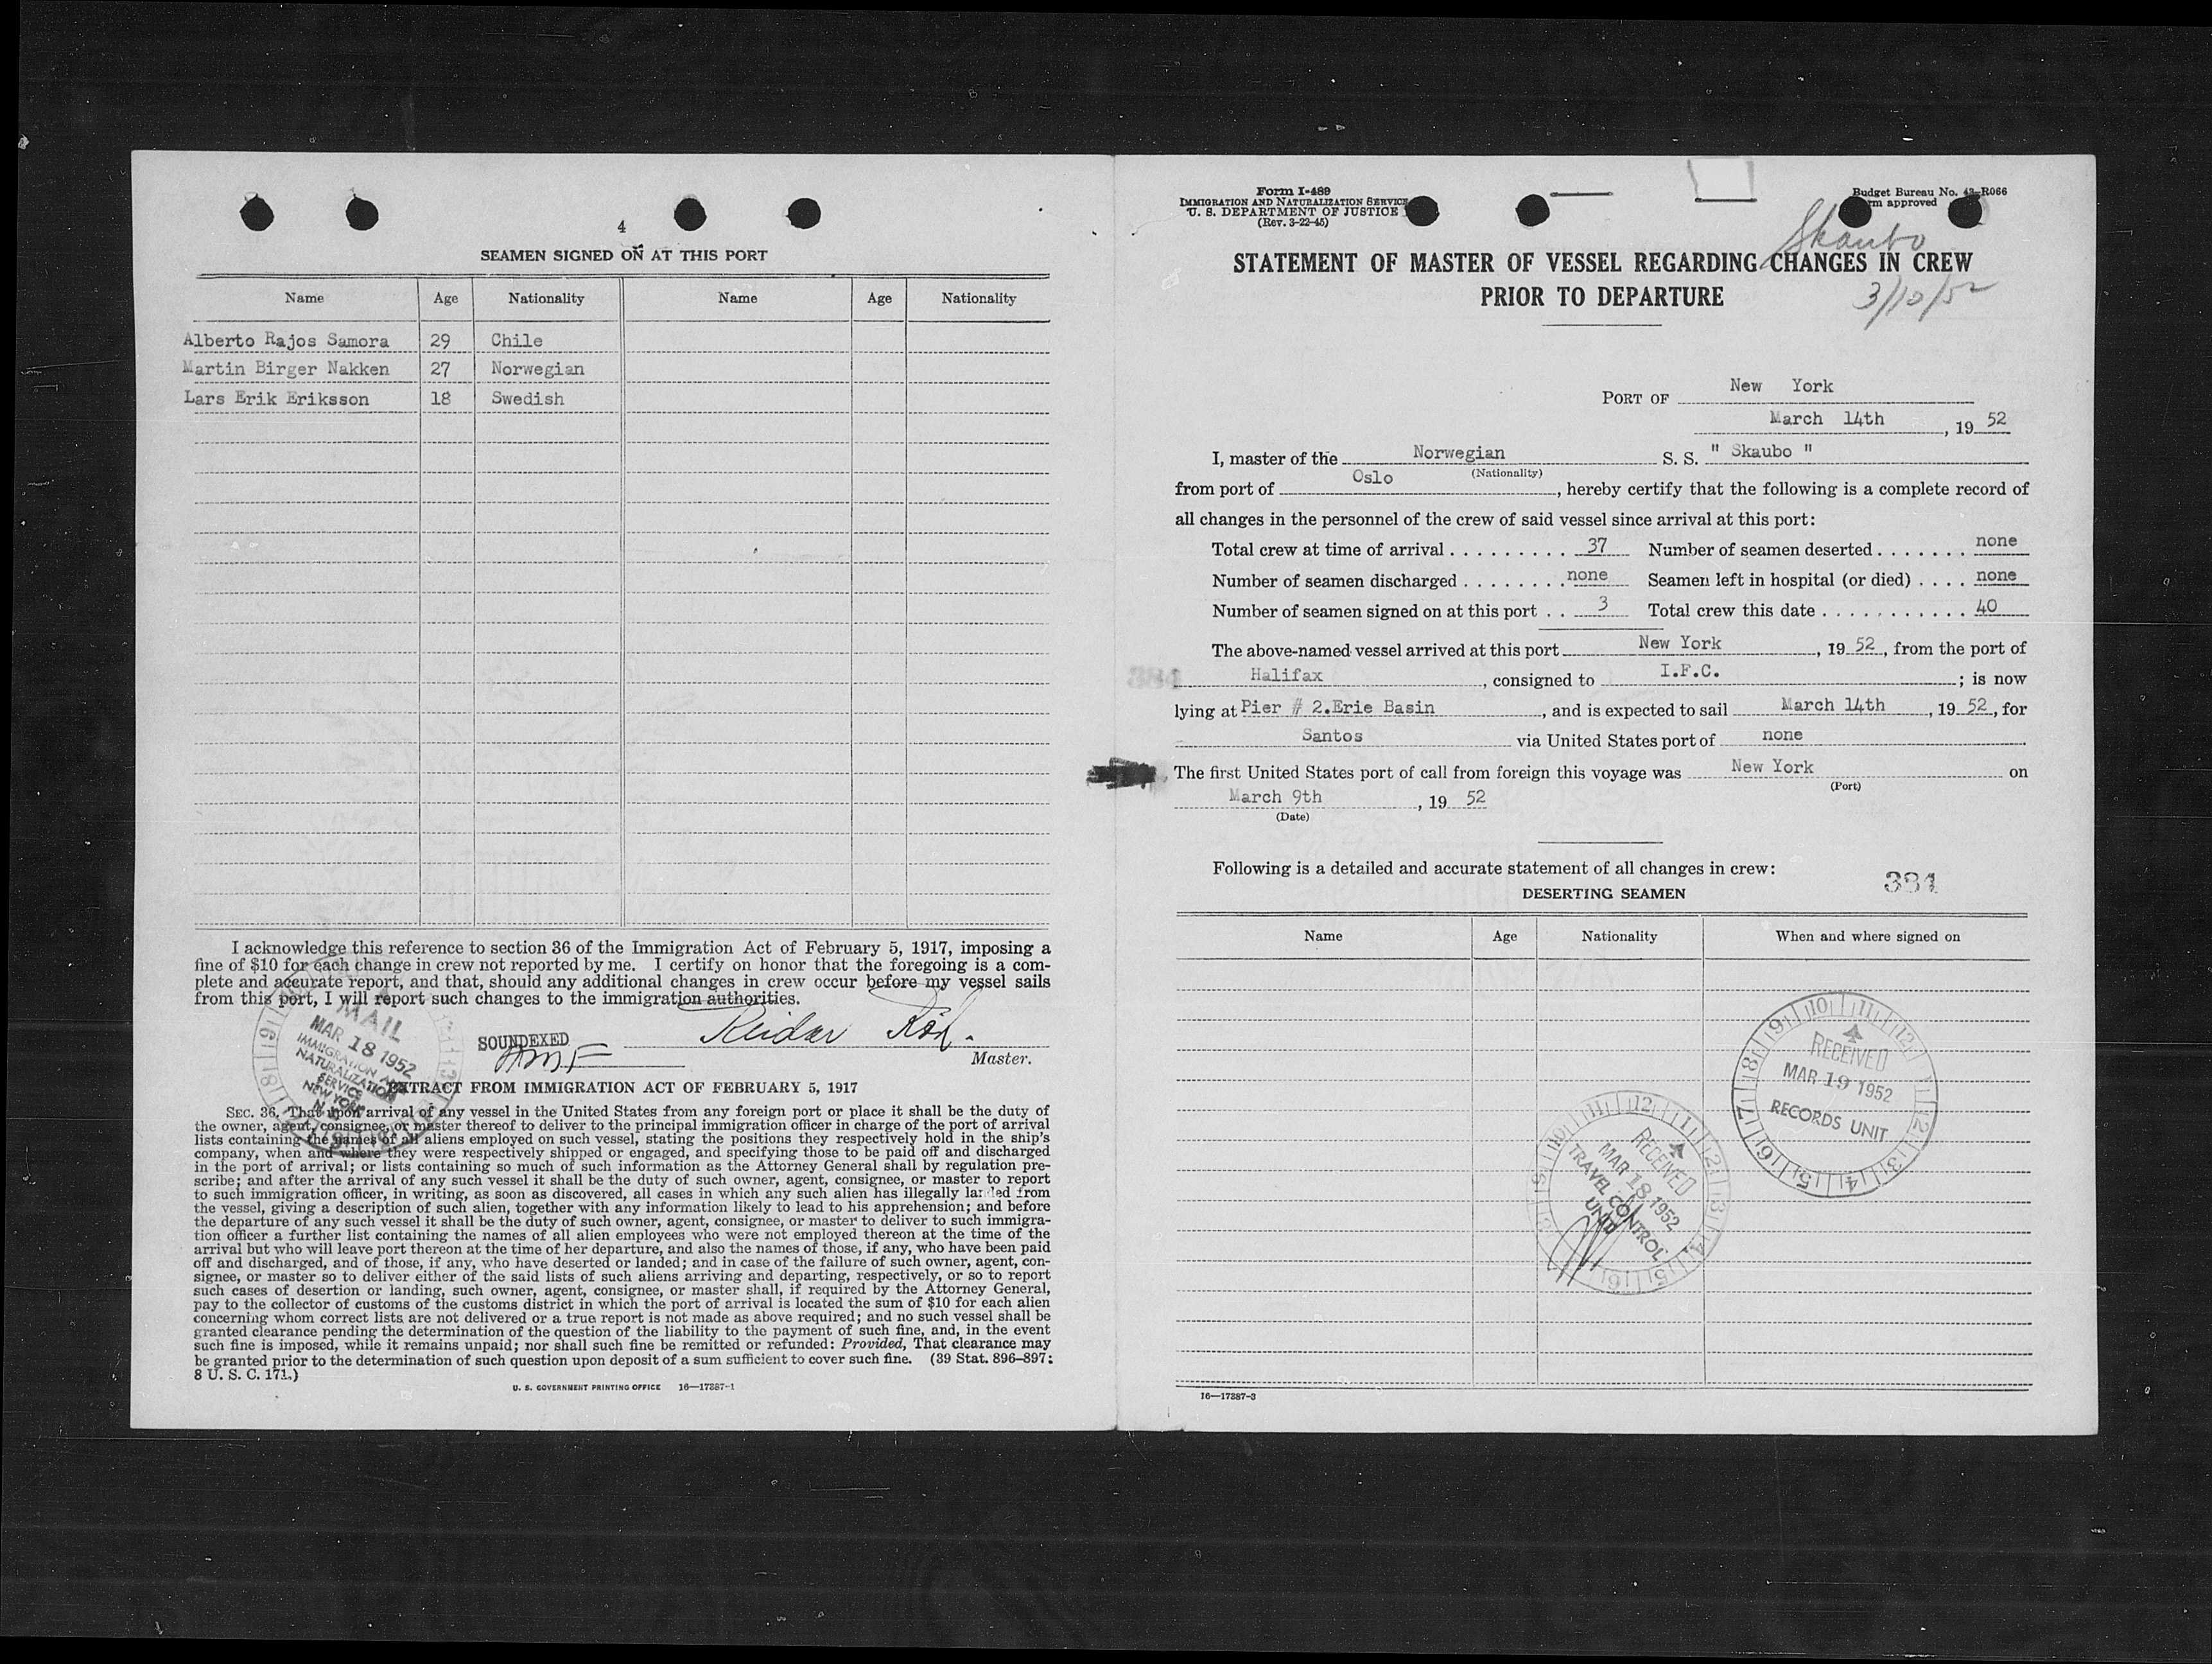 4
SEAMEN SIGNED ON AT THIS PORT
Name Age Nationality Name Age Nationality
Alberto Rajos Samora 29 Chile
Martin Birger Nakken 27 Norwegian
Lars Erik Eriksson 18 Swedish
I acknowledge this reference to section 36 of the Immigration Act of February 5, 1917, imposing a
fine of $10 for each change in crew not reported by me. I certify on honor that the foregoing is a com-
plete and accurate report, and that, should any additional changes in crew occur before my vessel sails
from this port, I will report such changes to the immigration authorities.
MAIL
MAR 18 1952
IMMIGRATION AND
NATURALIZATION
SERVICE
NEW YORK
N.Y.
SOUNDEXED
Reidar
Master.
EXTRACT FROM IMMIGRATION ACT OF FEBRUARY 5, 1917
SEC. 36. That upon arrival of any vessel in the United States from any foreign port or place it shall be the duty of
the owner, agent, consignee, or master thereof to deliver to the principal immigration officer in charge of the port of arrival
lists containing the names of all aliens employed on such vessel, stating the positions they respectively hold in the ship's
company, when and where they were respectively shipped or engaged, and specifying those to be paid off and discharged
in the port of arrival; or lists containing so much of such information as the Attorney General shall by regulation pre-
scribe; and after the arrival of any such vessel it shall be the duty of such owner, agent, consignee, or master to report
to such immigration officer, in writing, as soon as discovered, all cases in which any such alien has illegally landed from
the vessel, giving a description of such alien, together with any information likely to lead to his apprehension; and before
the departure of any such vessel it shall be the duty of such owner, agent, consignee, or master to deliver to such immigra-
tion officer a further list containing the names of all alien employees who were not employed thereon at the time of the
arrival but who will leave port thereon at the time of her departure, and also the names of those, if any, who have been paid
off and discharged, and of those, if any, who have deserted or landed; and in case of the failure of such owner, agent, con-
signee, or master so to deliver either of the said lists of such aliens arriving and departing, respectively, or so to report
such cases of desertion or landing, such owner, agent, consignee, or master shall, if required by the Attorney General,
pay to the collector of customs of the customs district in which the port of arrival is located the sum of $10 for each alien
concerning whom correct lists are not delivered or a true report is not made as above required; and no such vessel shall be
granted clearance pending the determination of the question of the liability to the payment of such fine, and, in the event
such fine is imposed, while it remains unpaid; nor shall such fine be remitted or refunded: Provided, That clearance may
be granted prior to the determination of such question upon deposit of a sum sufficient to cover such fine. (39 Stat. 896–897;
8 U. S. C. 171.)
U. S. GOVERNMENT PRINTING OFFICE 16—17387-1
Form I-489
IMMIGRATION AND NATURALIZATION SERVICE
U. S. DEPARTMENT OF JUSTICE
(Rev. 3-22-45)
Budget Bureau No. 43-R066
approved
Skaubo
STATEMENT OF MASTER OF VESSEL REGARDING CHANGES IN CREW
PRIOR TO DEPARTURE
3/10/52
PORT OF New York
March 14th, 19 52
I, master of the Norwegian S. S. " Skaubo "
(Nationality)
from port of Oslo, hereby certify that the following is a complete record of
all changes in the personnel of the crew of said vessel since arrival at this port:
Total crew at time of arrival . . . . . . . . . 37 Number of seamen deserted . . . . . . . none
Number of seamen discharged . . . . . . . . none Seamen left in hospital (or died) . . . . none
Number of seamen signed on at this port . . 3 Total crew this date . . . . . . . . . . . 40
The above-named vessel arrived at this port New York, 19 52, from the port of
Halifax, consigned to I.F.C.; is now
lying at Pier # 2.Erie Basin, and is expected to sail March 14th, 19 52, for
Santos via United States port of none
The first United States port of call from foreign this voyage was New York on
(Port)
March 9th, 19 52
(Date)
Following is a detailed and accurate statement of all changes in crew:
384
DESERTING SEAMEN
Name Age Nationality When and where signed on
RECEIVED
MAR 19 1952
RECORDS UNIT
RECEIVED
MAR 18 1952
TRAVEL CONTROL
UNIT
16—17387-3